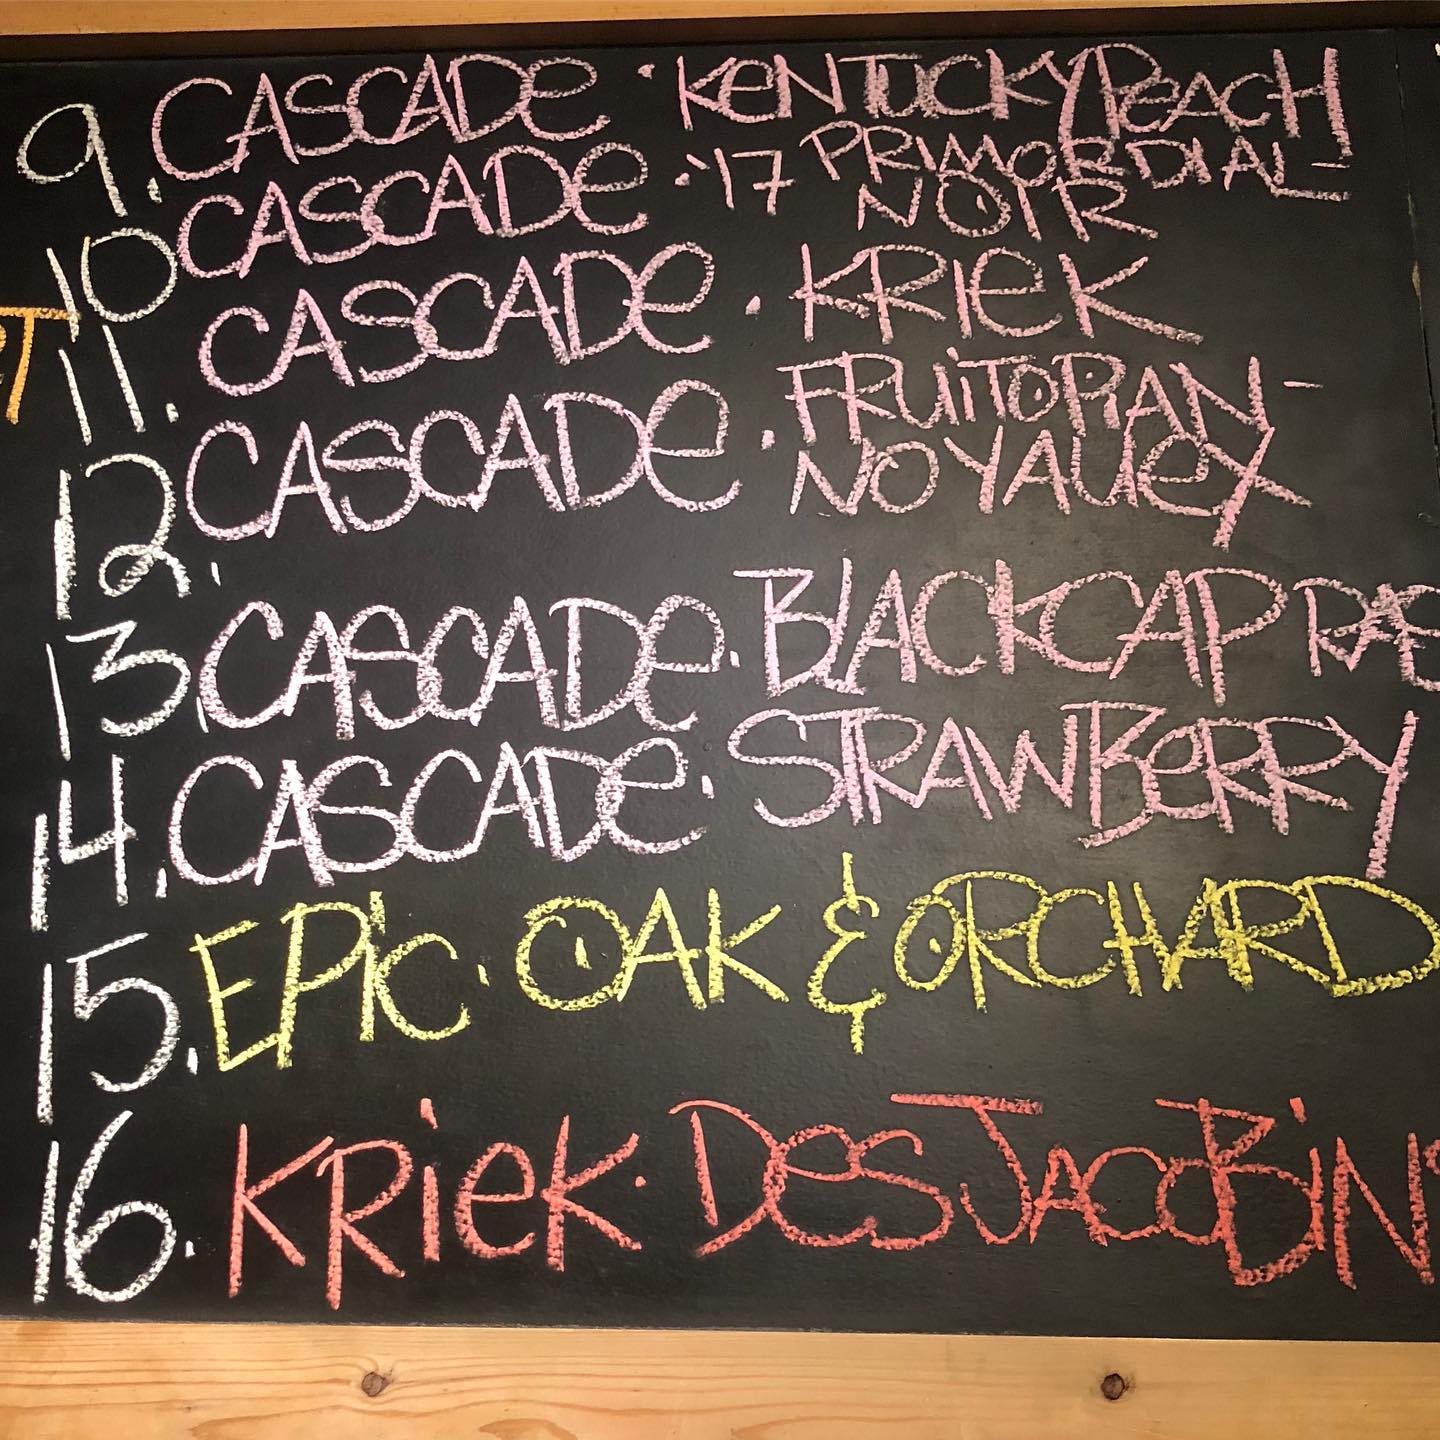 9. CASCADE · KENTUCKY PEACH
10. CASCADE · '17 PRIMORDIAL-
NOIR
11. CASCADE · KRIEK
12. CASCADE · FRUITOPAN-
NOYAUEX
13. CASCADE · BLACKCAP RAS
14. CASCADE · STRAWBERRY
15. EPIC · OAK & ORCHARD
16. KRIEK · DES JACOBINS